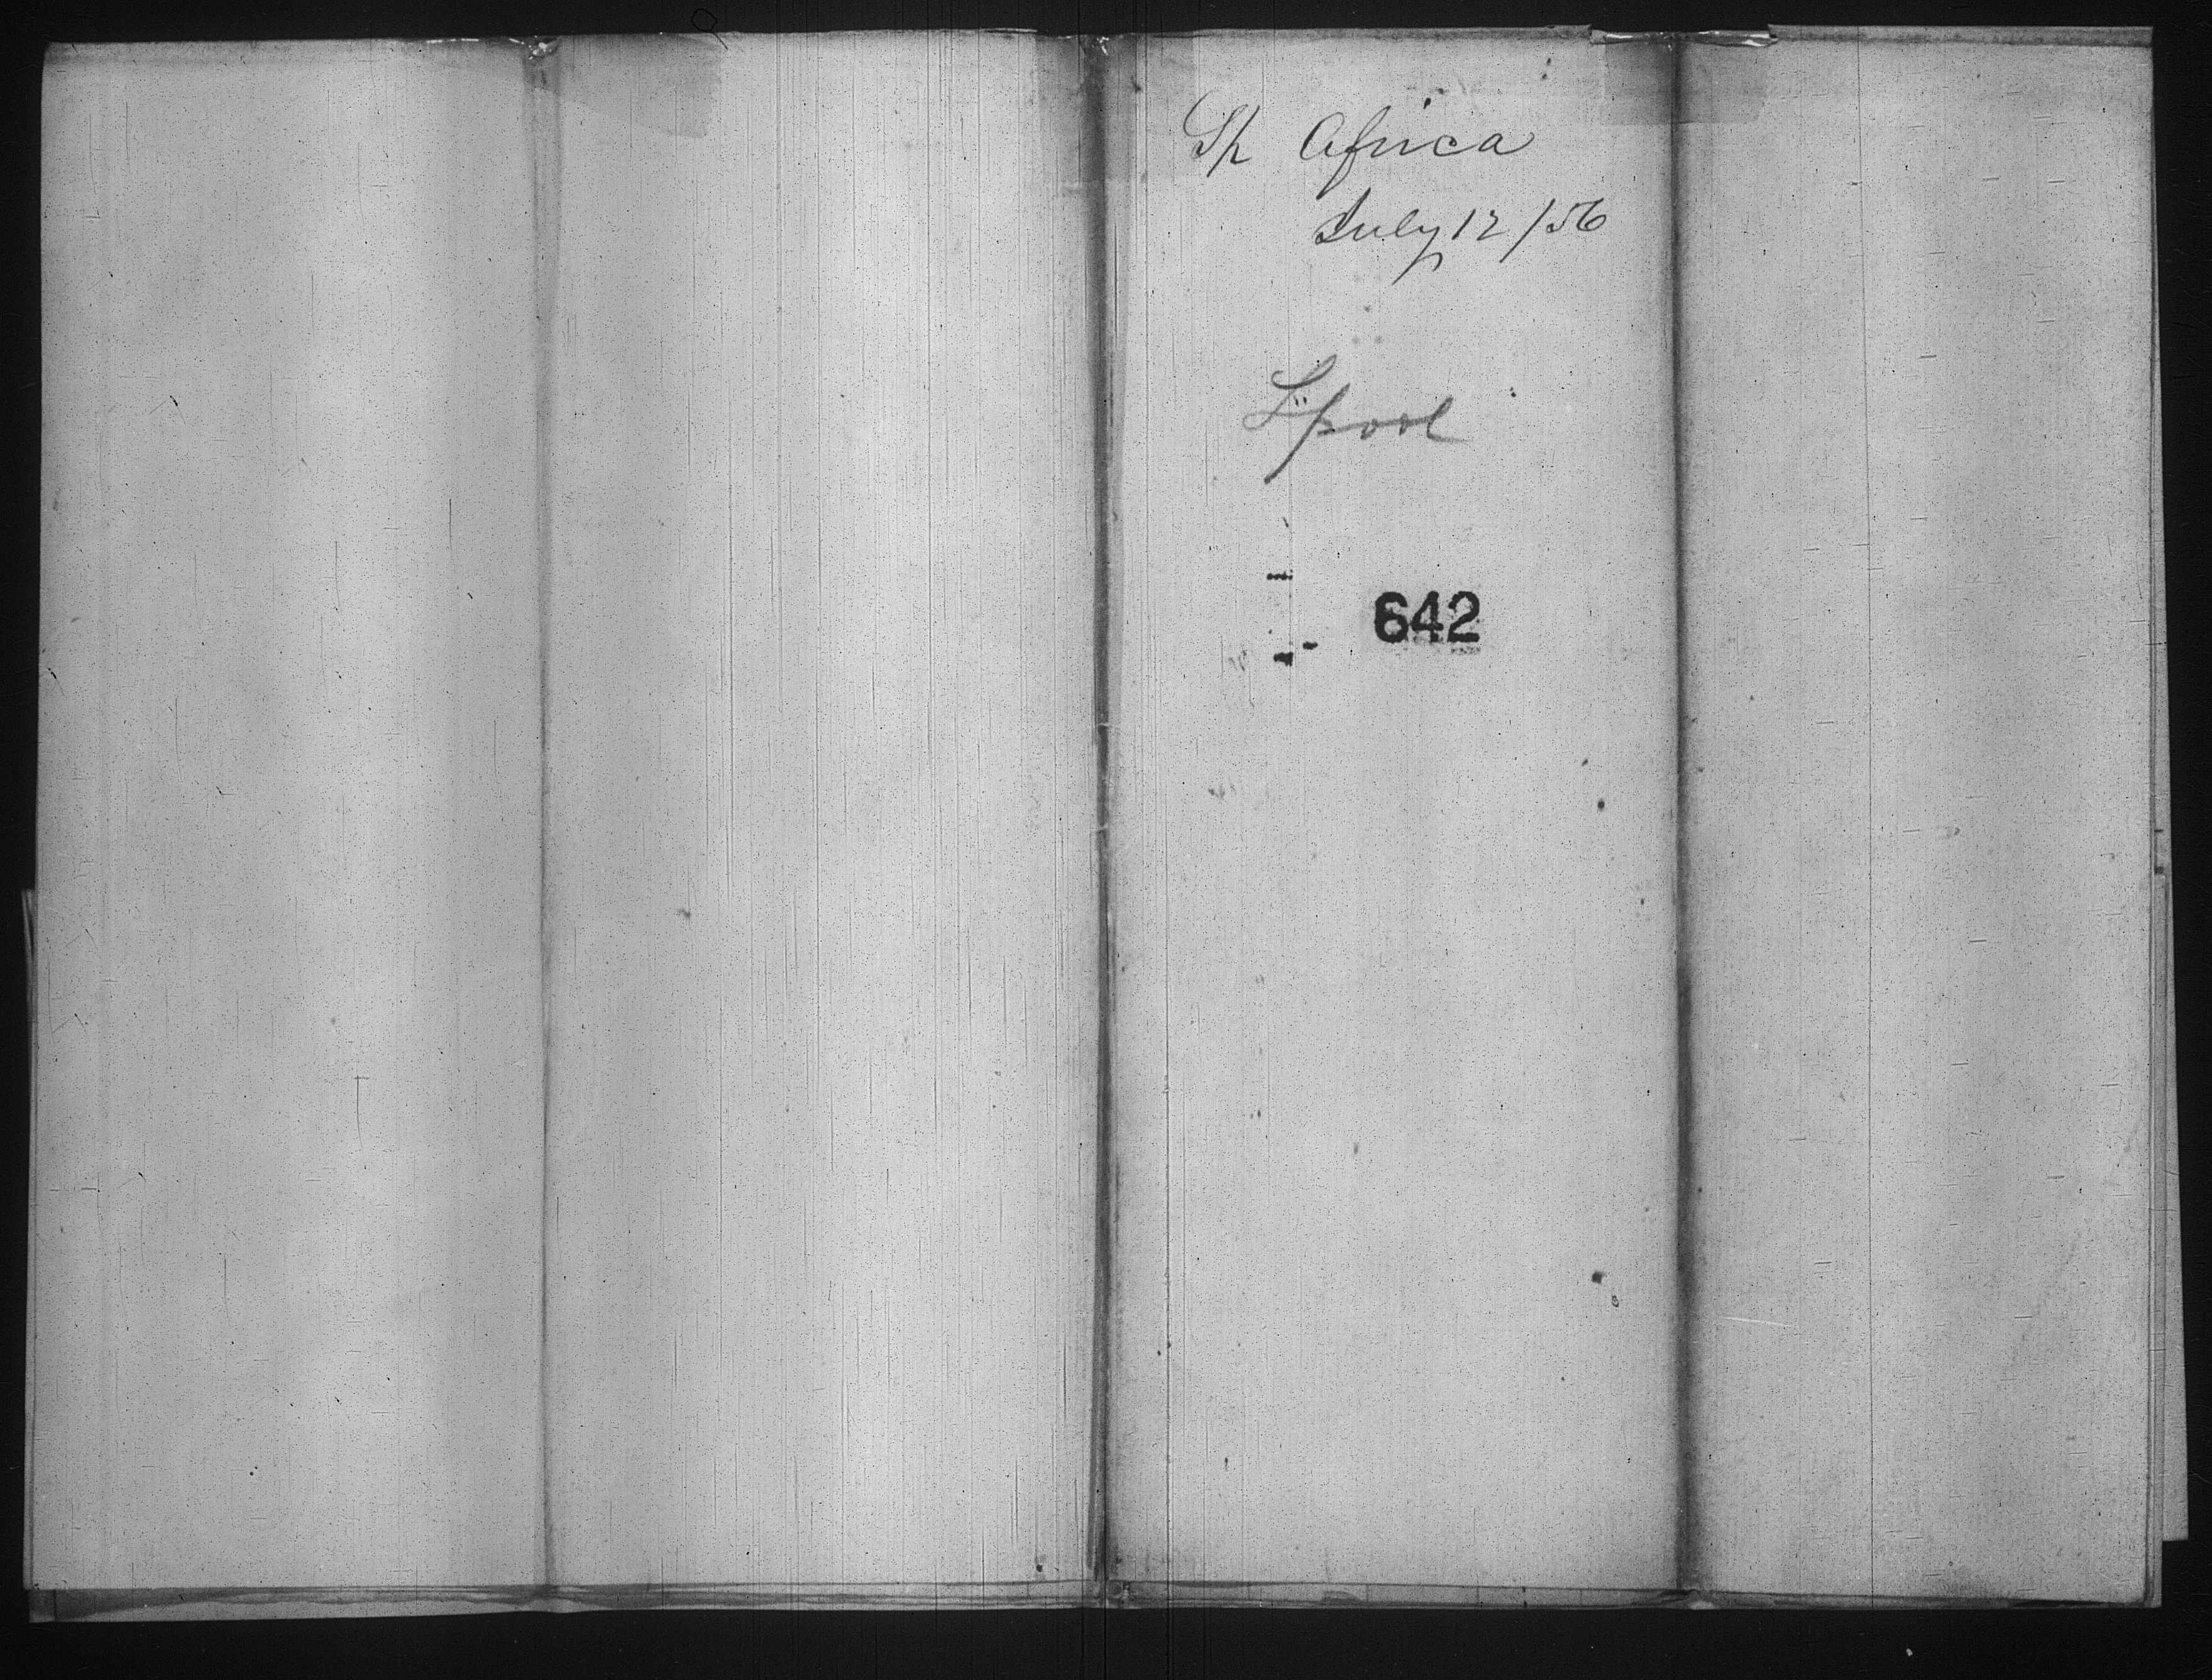 Sh Africa
July 12/56
L"pool
642